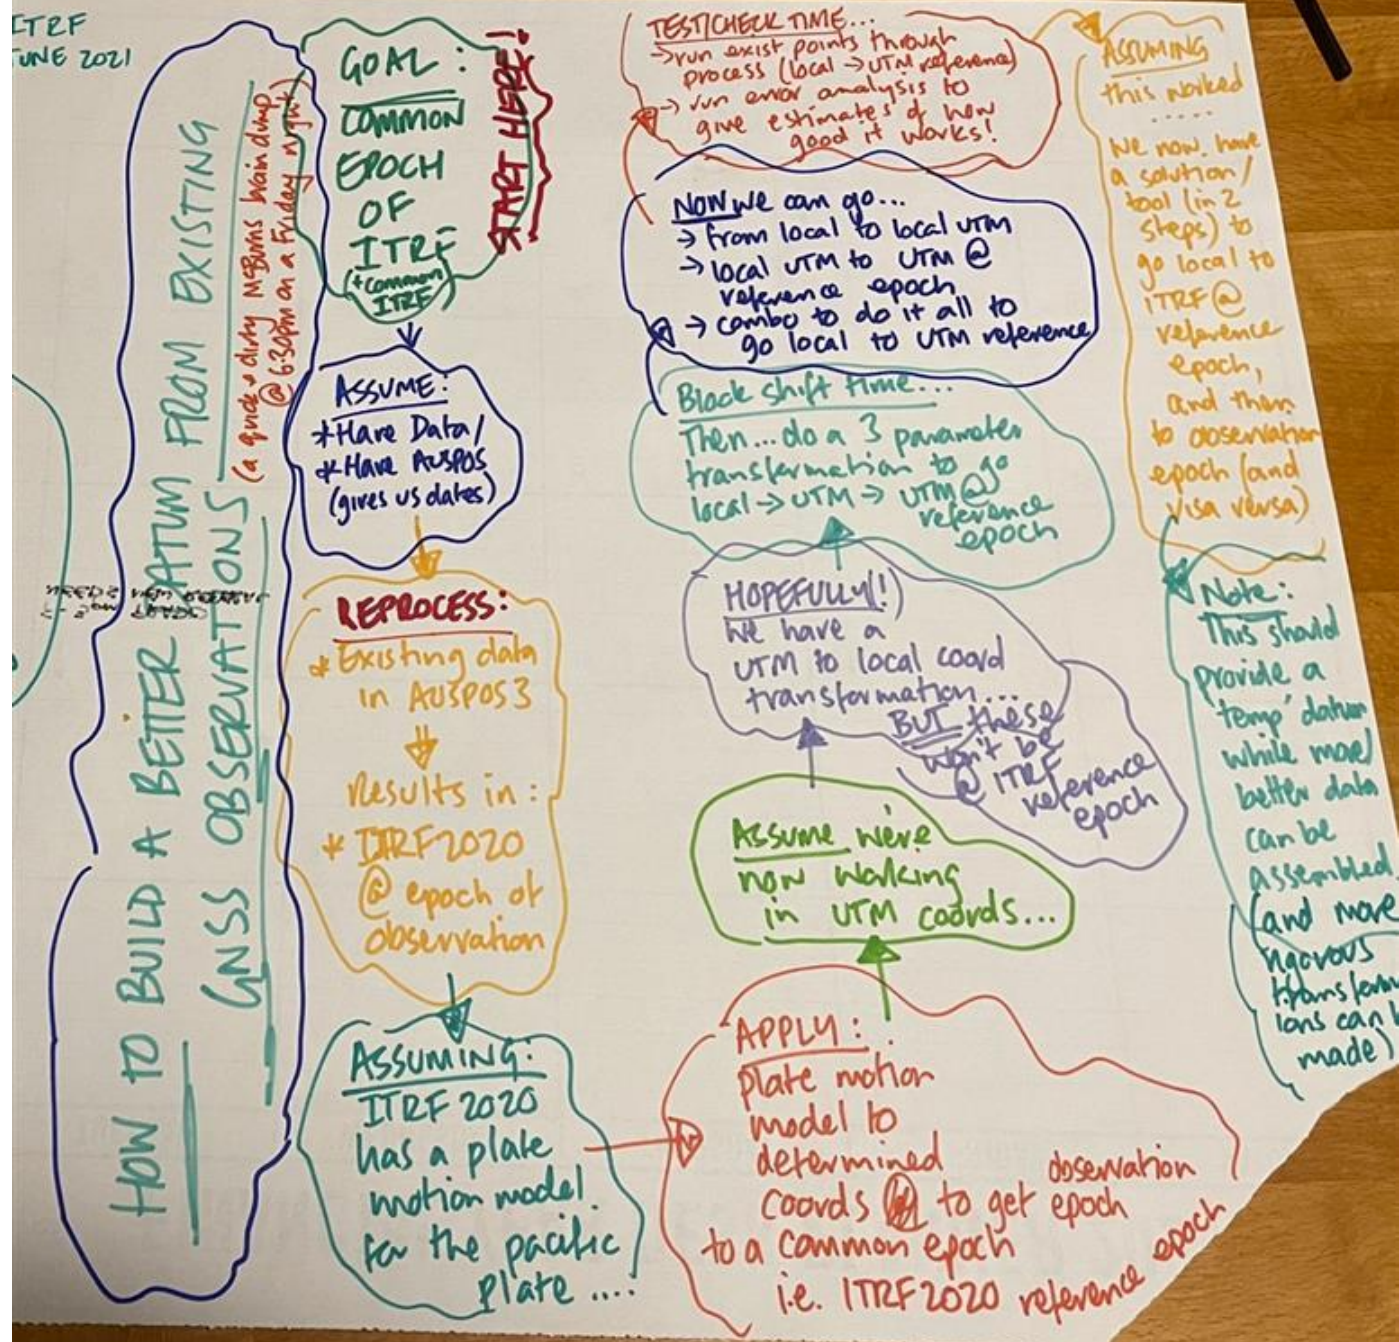 ITRF
JUNE 2021
HOW TO BUILD A BETTER DATUM FROM EXISTING
GNSS OBSERVATIONS
(a quick & dirty McBurns brain dump
@ 6:30pm on a Friday night)
START HERE!
GOAL:
COMMON
EPOCH
OF
ITRF
(+common
ITRF)
ASSUME:
*Have Data/
*Have AUSPOS
(gives us dates)
REPROCESS:
* Existing data
in AUSPOS3
Results in:
* ITRF2020
@ epoch of
observation
ASSUMING:
ITRF 2020
has a plate
motion model
for the pacific
plate ....
APPLY:
plate motion
model to
determined
coords to get observation epoch
to a common epoch
i.e. ITRF2020 reference epoch
ASSUME we're
now working
in UTM coords...
HOPEFULLY(!)
We have a
UTM to local coord
transformation...
BUT these
won't be
@ ITRF
reference
epoch
Block shift time...
Then... do a 3 parameter
transformation to go
local → UTM → UTM @
reference
epoch
NOW we can go...
→ from local to local UTM
→ local UTM to UTM @
reference epoch
→ combo to do it all to
go local to UTM reference
TEST/CHECK TIME...
→ run exist points through
process (local → UTM reference)
→ run error analysis to
give estimates of how
good it works!
ASSUMING
this worked
.....
We now have
a solution/
tool (in 2
steps) to
go local to
ITRF @
reference
epoch,
and then
to observation
epoch (and
visa versa)
Note:
This should
provide a
'temp' datum
while more/
better data
can be
assembled
(and more
rigorous
transform
ions can b
made)